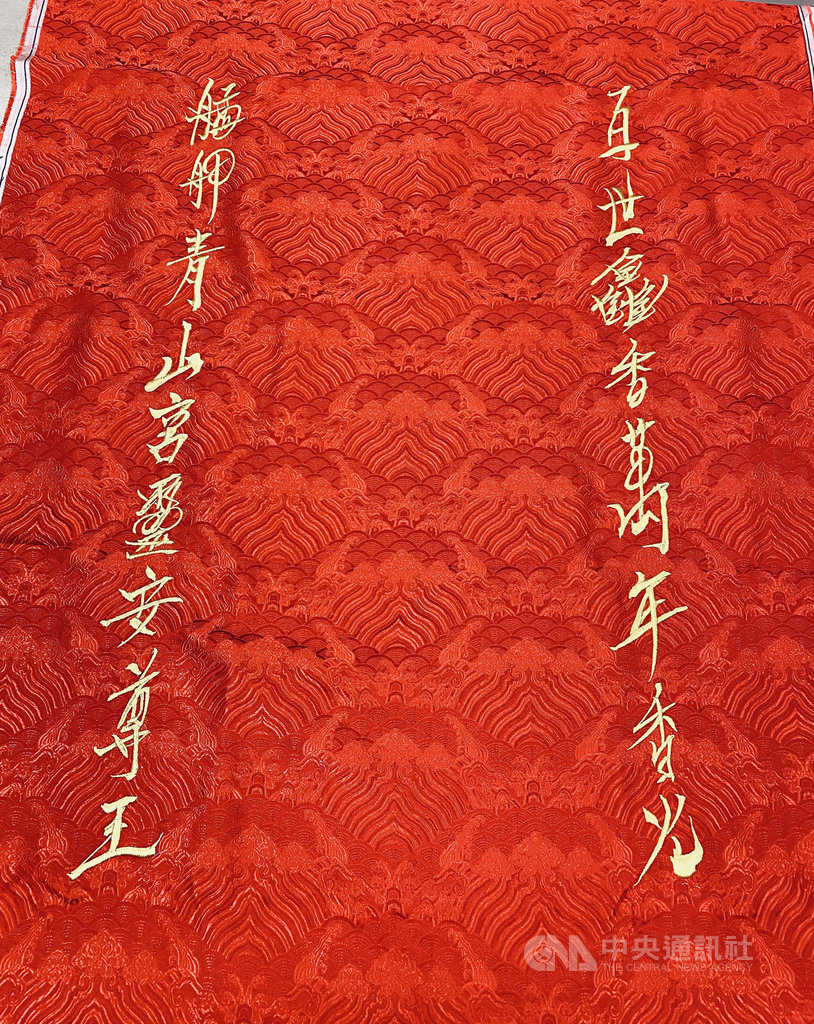 百世鑫香萬年香火
艋舺青山宮靈安尊王
中央通訊社
THE CENTRAL NEWS AGENCY